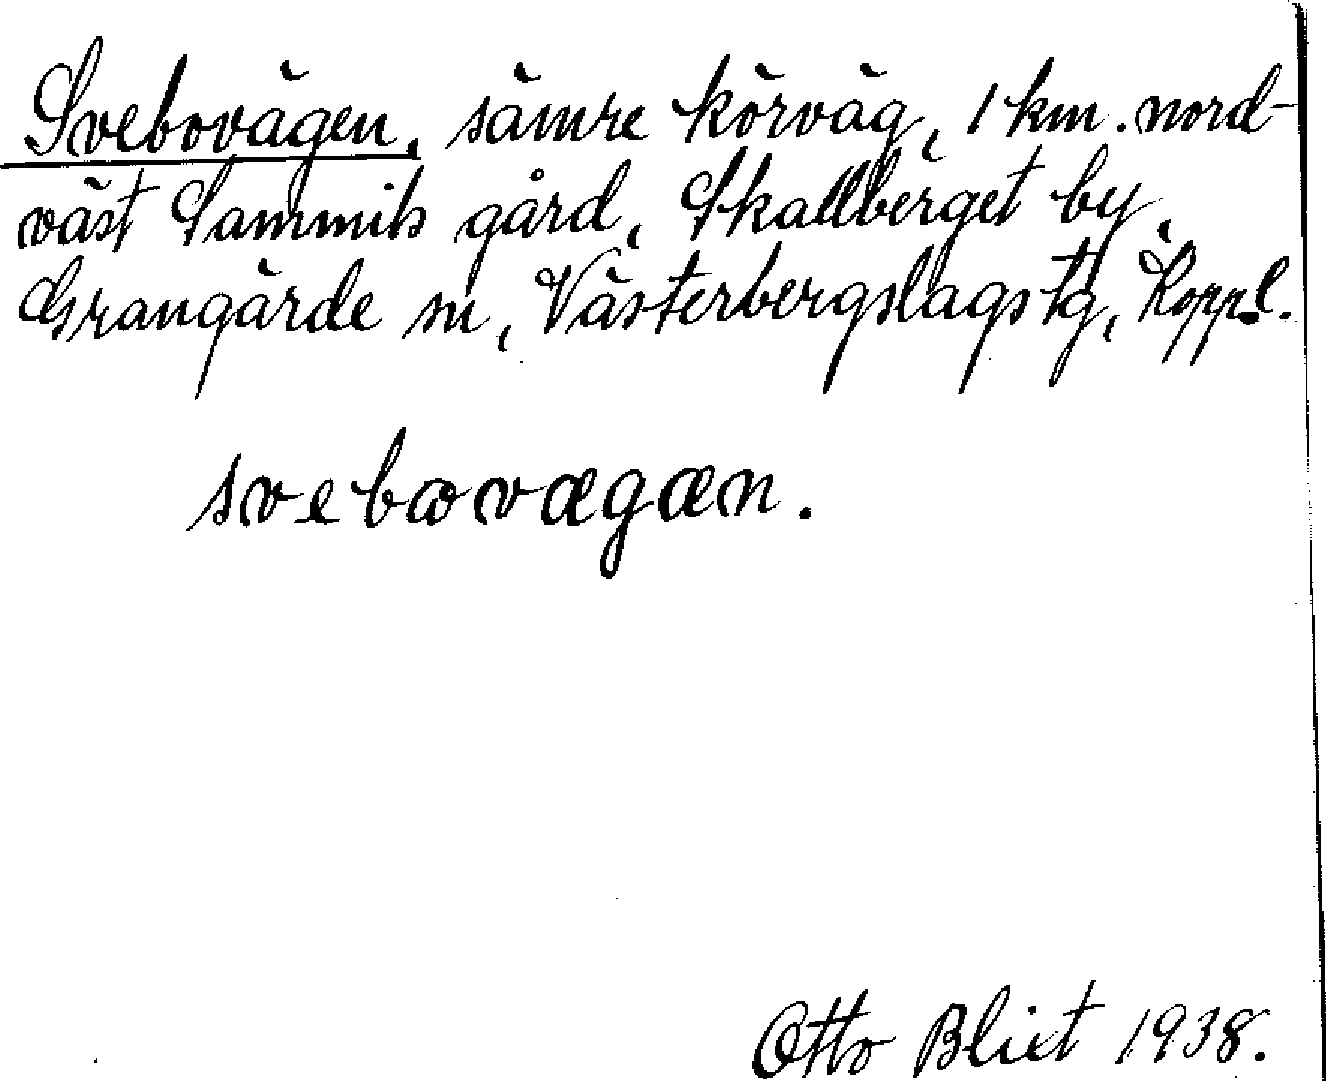 Svebovägen, sämre körväg, 1 km. nord-
väst Sammils gård, Skallberget by,
Grangärde sn, Västerbergslags tg, Koppl.
svebovægæn.
Otto Blixt 1938.